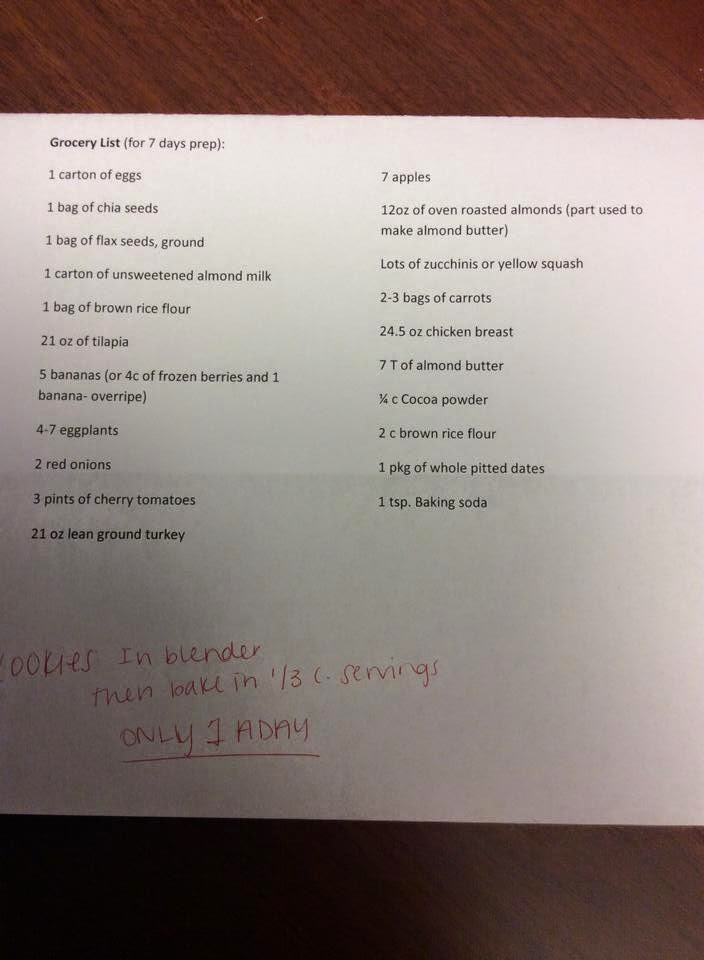 Grocery List (for 7 days prep):
1 carton of eggs
1 bag of chia seeds
1 bag of flax seeds, ground
1 carton of unsweetened almond milk
1 bag of brown rice flour
21 oz of tilapia
5 bananas (or 4c of frozen berries and 1
banana- overripe)
4-7 eggplants
2 red onions
3 pints of cherry tomatoes
21 oz lean ground turkey
7 apples
12oz of oven roasted almonds (part used to
make almond butter)
Lots of zucchinis or yellow squash
2-3 bags of carrots
24.5 oz chicken breast
7 T of almond butter
¼ c Cocoa powder
2 c brown rice flour
1 pkg of whole pitted dates
1 tsp. Baking soda
COOKIES In blender
then bake in 1/3 C. servings
ONLY 1 A DAY